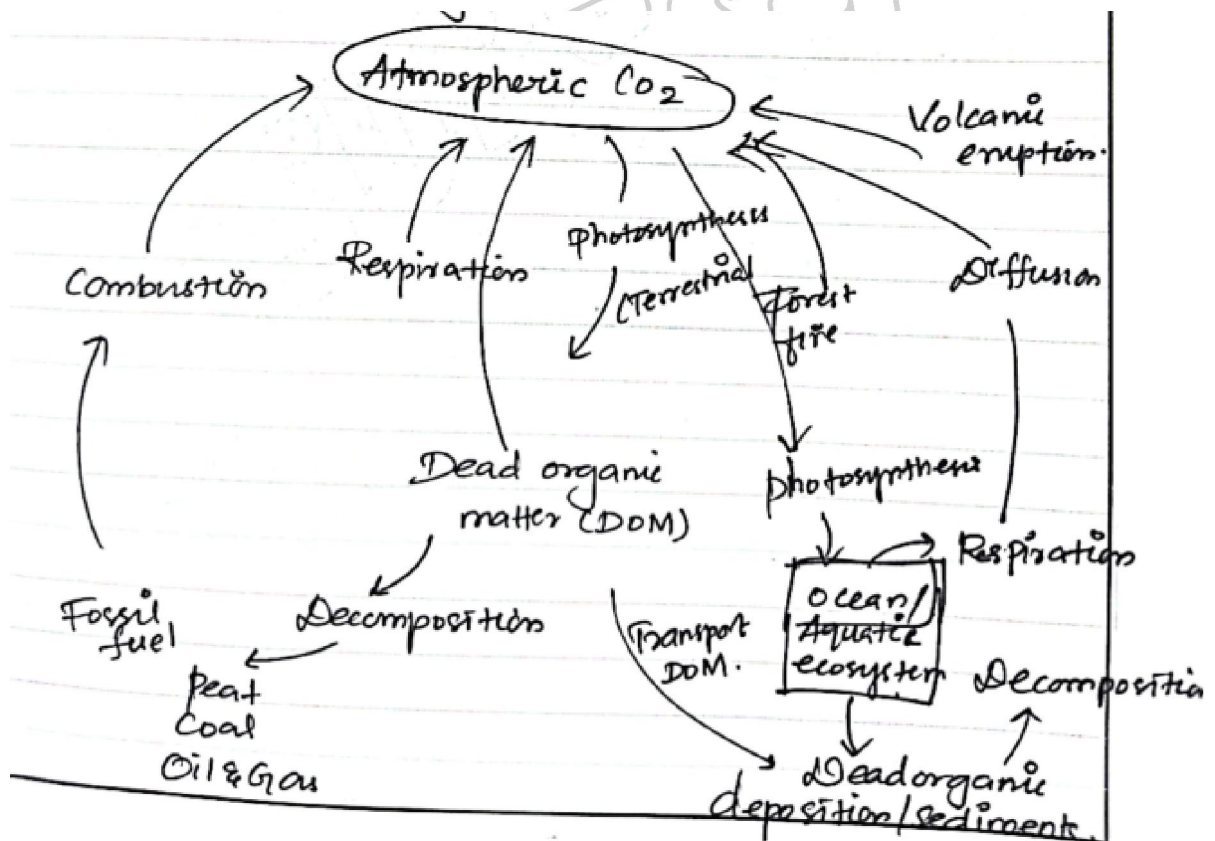 Atmospheric CO2
Volcanic
eruption.
Photosynthesis
Respiration
Combustion
(Terrestrial
Forest
fire
Diffusion
Dead organic
matter (DOM)
photosynthesis
Respiration
Fossil
fuel
Decomposition
Transport
DOM.
Ocean/
Aquatic
ecosystem
Decomposition
Peat
Coal
Oil & Gas
Dead organic
deposition/sediments.